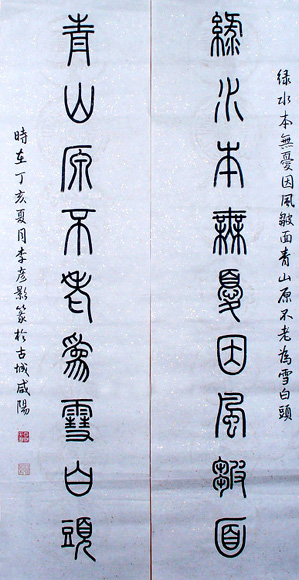 綠水本無憂因風皺面青山原不老為雪白頭
綠水本無憂因風皺面
青山原不老為雪白頭
時在丁亥夏月李彦影篆於古城咸陽